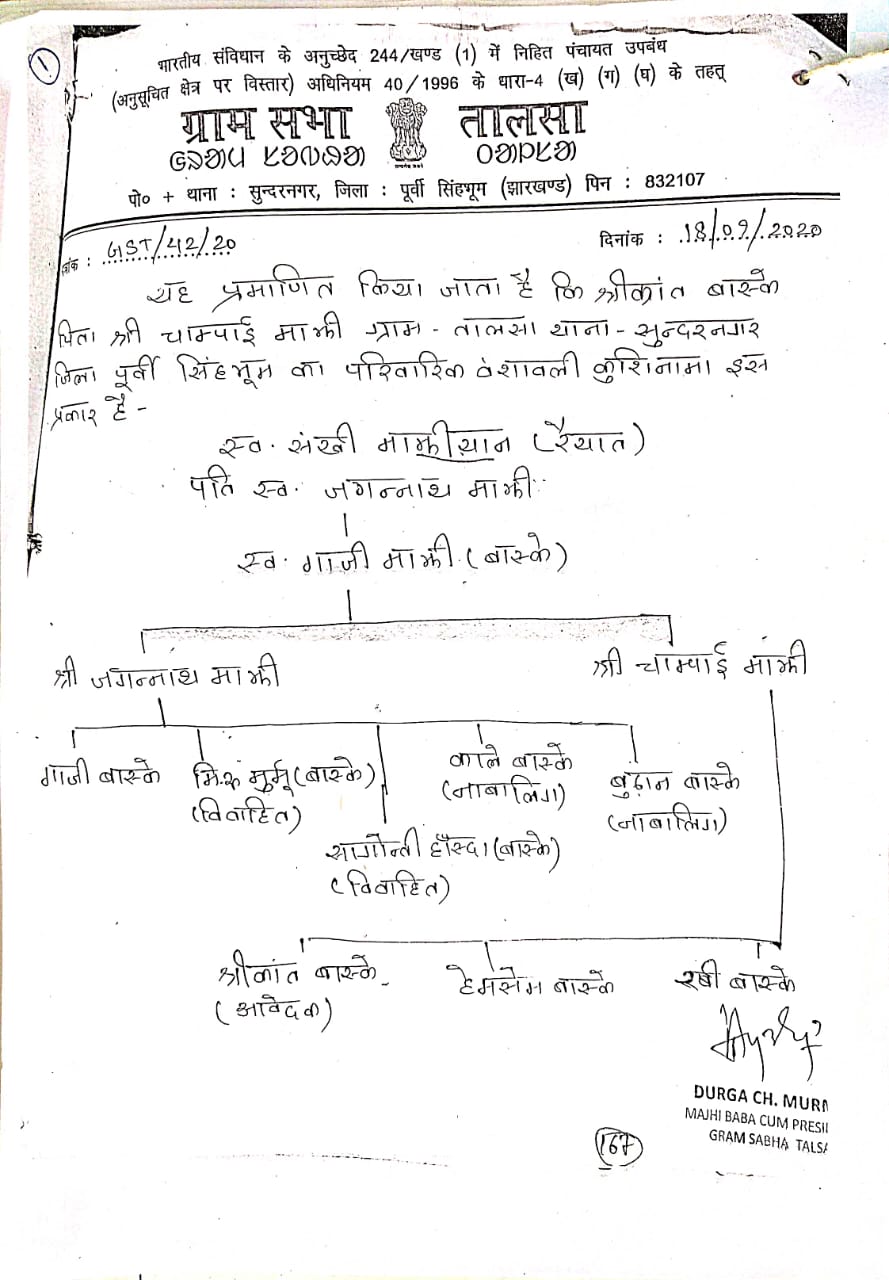 1
भारतीय संविधान के अनुच्छेद 244/खण्ड (1) में निहित पंचायत उपबंध
(अनुसूचित क्षेत्र पर विस्तार) अधिनियम 40/1996 के धारा-4 (ख) (ग) (घ) के तहत्
ग्राम सभा तालसा
पो० + थाना : सुन्दरनगर, जिला : पूर्वी सिंहभूम (झारखण्ड) पिन : 832107
GST/42/20 दिनांक : 18/09/2020
यह प्रमाणित किया जाता है कि श्रीकांत बास्के
पिता श्री चाम्पाई माझी ग्राम - तालसा थाना - सुन्दरनगर
जिला पूर्वी सिंहभूम का परिवारिक वंशावली कुर्शिनामा इस
प्रकार है -
स्व. संखी माझीयान (रैयात)
पति स्व. जगन्नाथ माझी
स्व. गाजी माझी (बास्के)
श्री जगन्नाथ माझी श्री चाम्पाई माझी
गाजी बास्के मुर्मू (बास्के) काले बास्के बुढ़ान बास्के
(विवाहित) (नाबालिग) (नाबालिग)
हाँसदा (बास्के)
(विवाहित)
श्रीकांत बास्के हेमसेम बास्के रबी बास्के
(आवेदक)
DURGA CH. MURM
MAJHI BABA CUM PRESI
GRAM SABHA TALSA
167